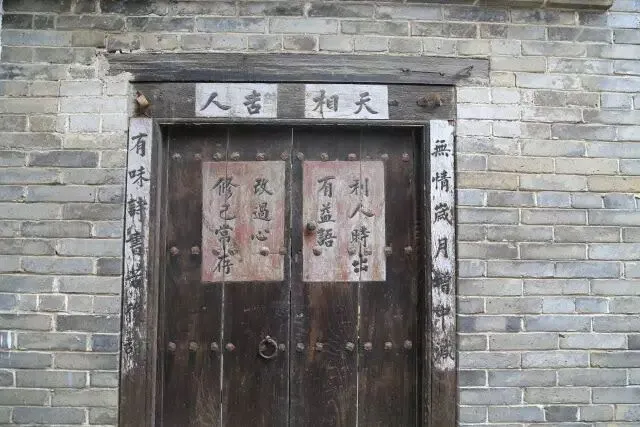 天相吉人
無情歲月增中減
利人時出
有益語
修己常存
改過心
有味詩書